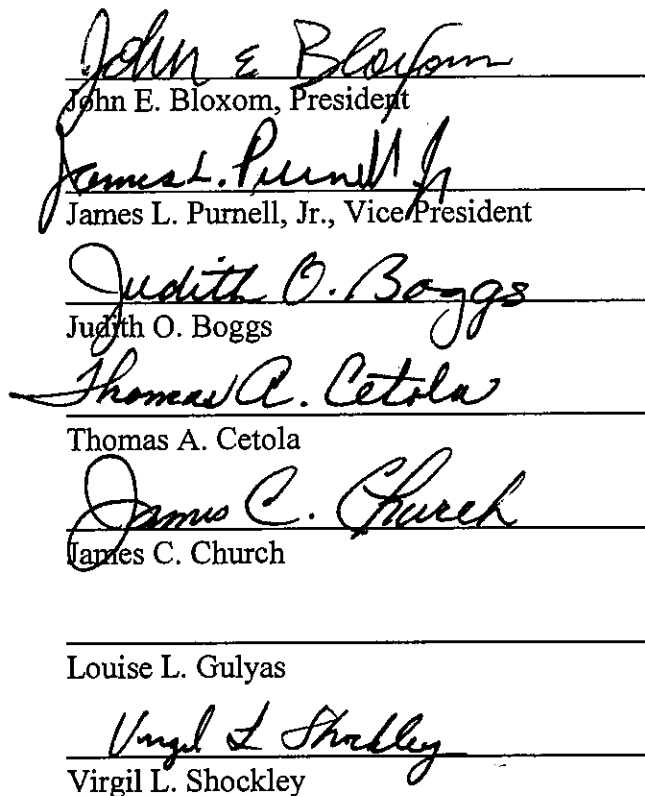 John E Bloxom
John E. Bloxom, President
James L. Purnell Jr
James L. Purnell, Jr., Vice President
Judith O. Boggs
Judith O. Boggs
Thomas A. Cetola
Thomas A. Cetola
James C. Church
James C. Church
Louise L. Gulyas
Virgil L Shockley
Virgil L. Shockley